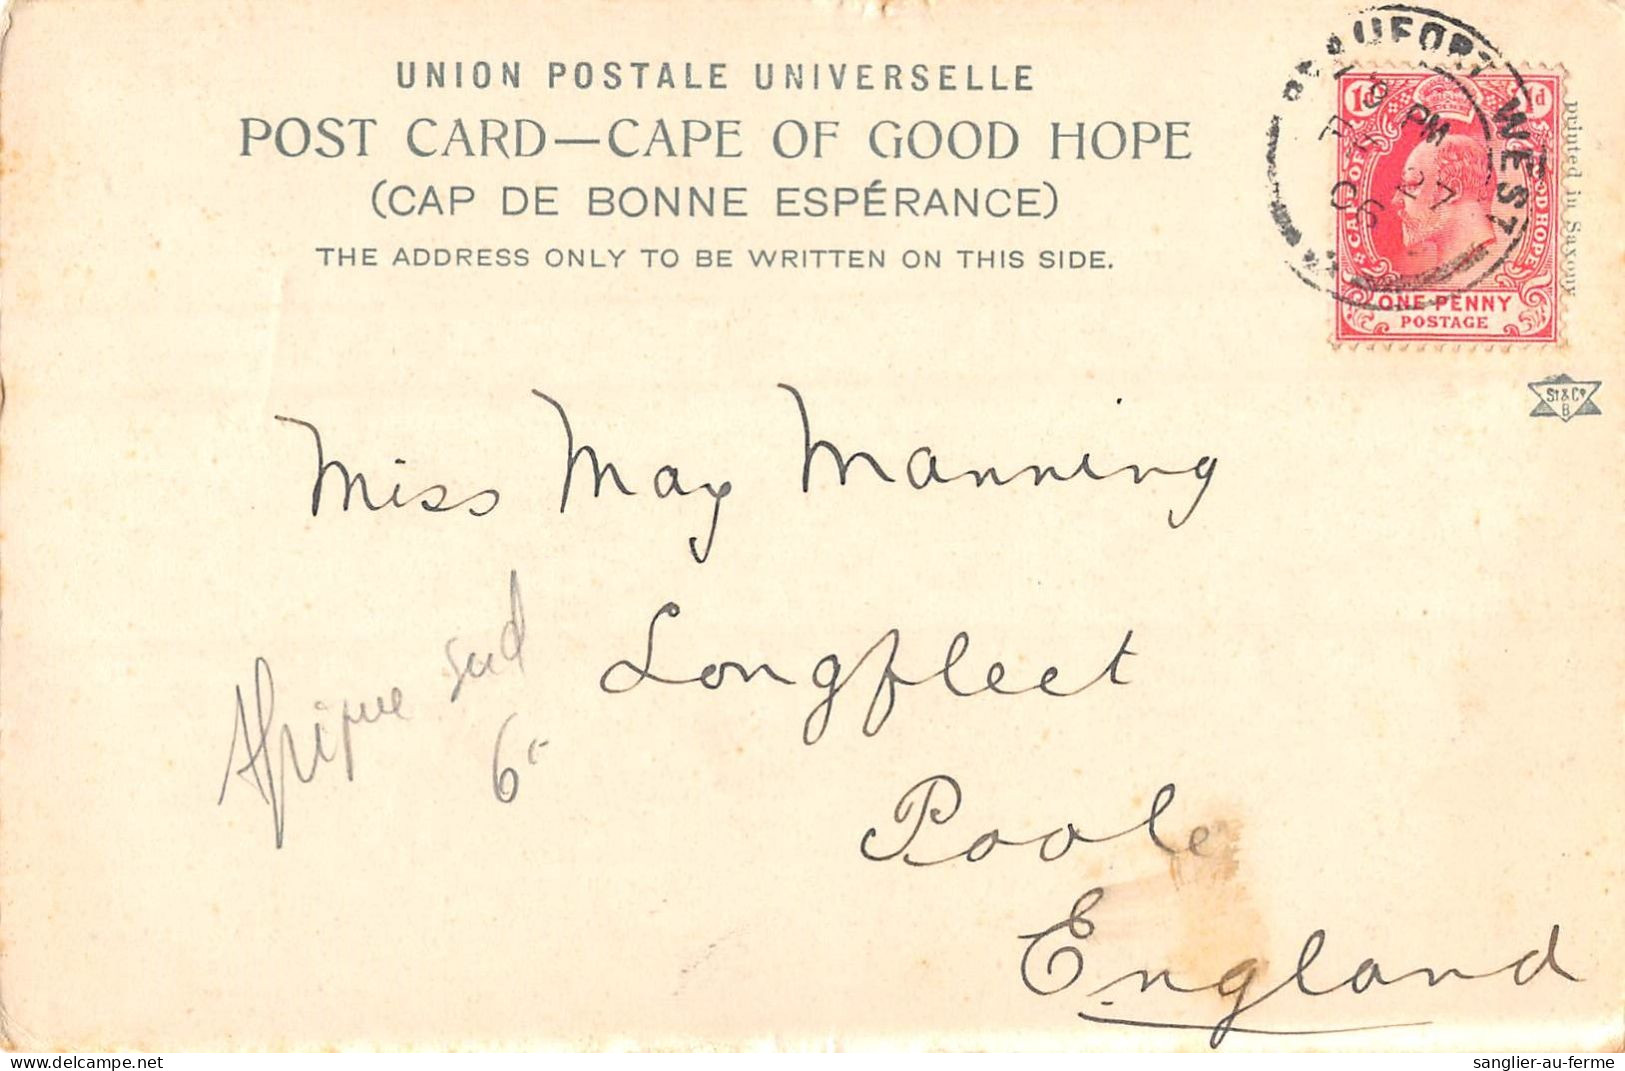 UNION POSTALE UNIVERSELLE
POST CARD—CAPE OF GOOD HOPE
(CAP DE BONNE ESPÉRANCE)
THE ADDRESS ONLY TO BE WRITTEN ON THIS SIDE.
BEAUFORT WEST
PM
27
1d 1d
CAPE OF GOOD HOPE
ONE PENNY
POSTAGE
printed in Saxony
St & Co
B
Miss May Manning
Longfleet
Poole
England
Afrique sud
6
delcampe.net
sanglier-au-ferme